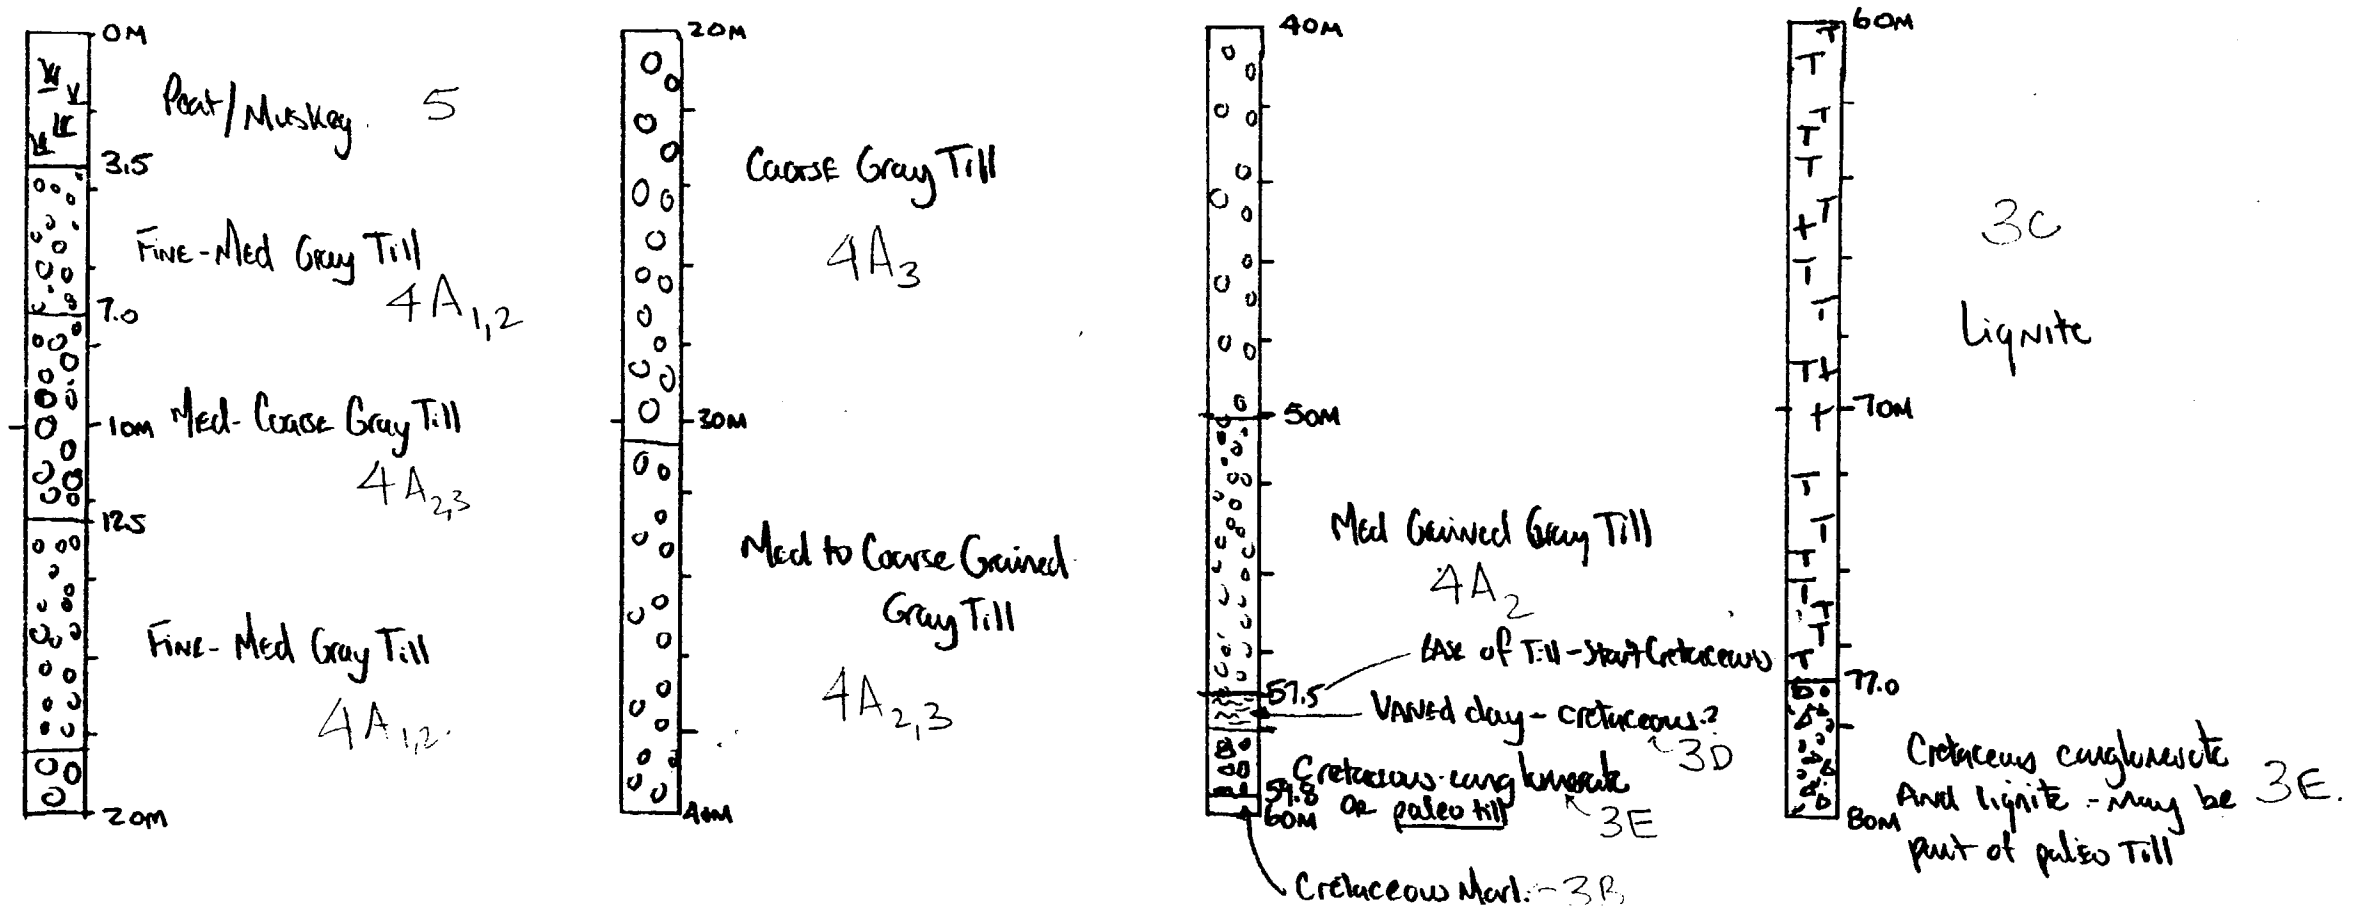 0M
Peat/Muskeg. 5
3.5
Fine-Med Gray Till
4A1,2
7.0
10M
Med-Coarse Gray Till
4A2,3
12.5
Fine-Med Gray Till
4A1,2.
20M
20M
Coarse Gray Till
4A3
30M
Med to Coarse Grained
Gray Till
4A2,3
40M
40M
50M
Med Grained Gray Till
4A2
Base of Till-Start Cretaceous
57.5
Varved clay - Cretaceous?
3D
Cretaceous conglomerate
59.8
or paleo till
3E
60M
Cretaceous Marl. - 3B
60M
3C
Lignite
70M
77.0
Cretaceous conglomerate
And lignite - may be 3E.
part of paleo Till
80M